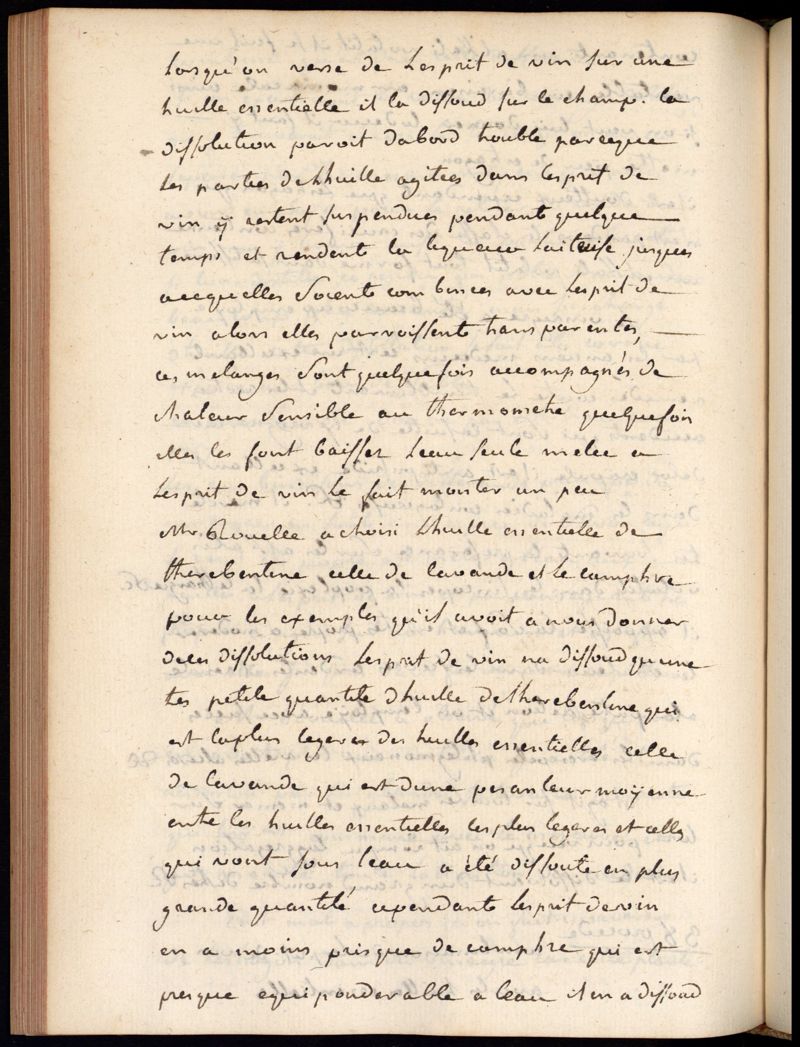 lorsqu'on verse de lesprit de vin sur une
huille essentielle il la dissoud sur le champ. la
dissolution paroit dabord trouble parceque
les parties de lhuille agitées dans lesprit de
vin ÿ restent suspendues pendant quelque
temps et rendent la liqueur laiteuse jusques
acequelles soient combinees avec lesprit de
vin alors elles parroissent transparentes,
ces melanges sont quelquefois accompagnés de
chaleur sensible au thermometre quelquefois
elles les font baisser leau seule melee a
lesprit de vin le fait monter un peu
Mr. Rouelle a choisi lhuille essentielle de
therebentine celle de lavande et le camphre
pour les exemples qu'il avoit a nous donner
de ces dissolutions lesprit de vin na dissoud quune
tres petite quantite dhuille de therebentine qui
est la plus legere des huilles essentielles celle
de lavande qui est dune pesanteur moÿenne
entre les huilles essentielles les plus legeres et celles
qui vont sous leau a été dissoute en plus
grande quantité cependant lesprit de vin
en a moins prisque de camphre qui est
presque equiponderable a leau il en a dissoud